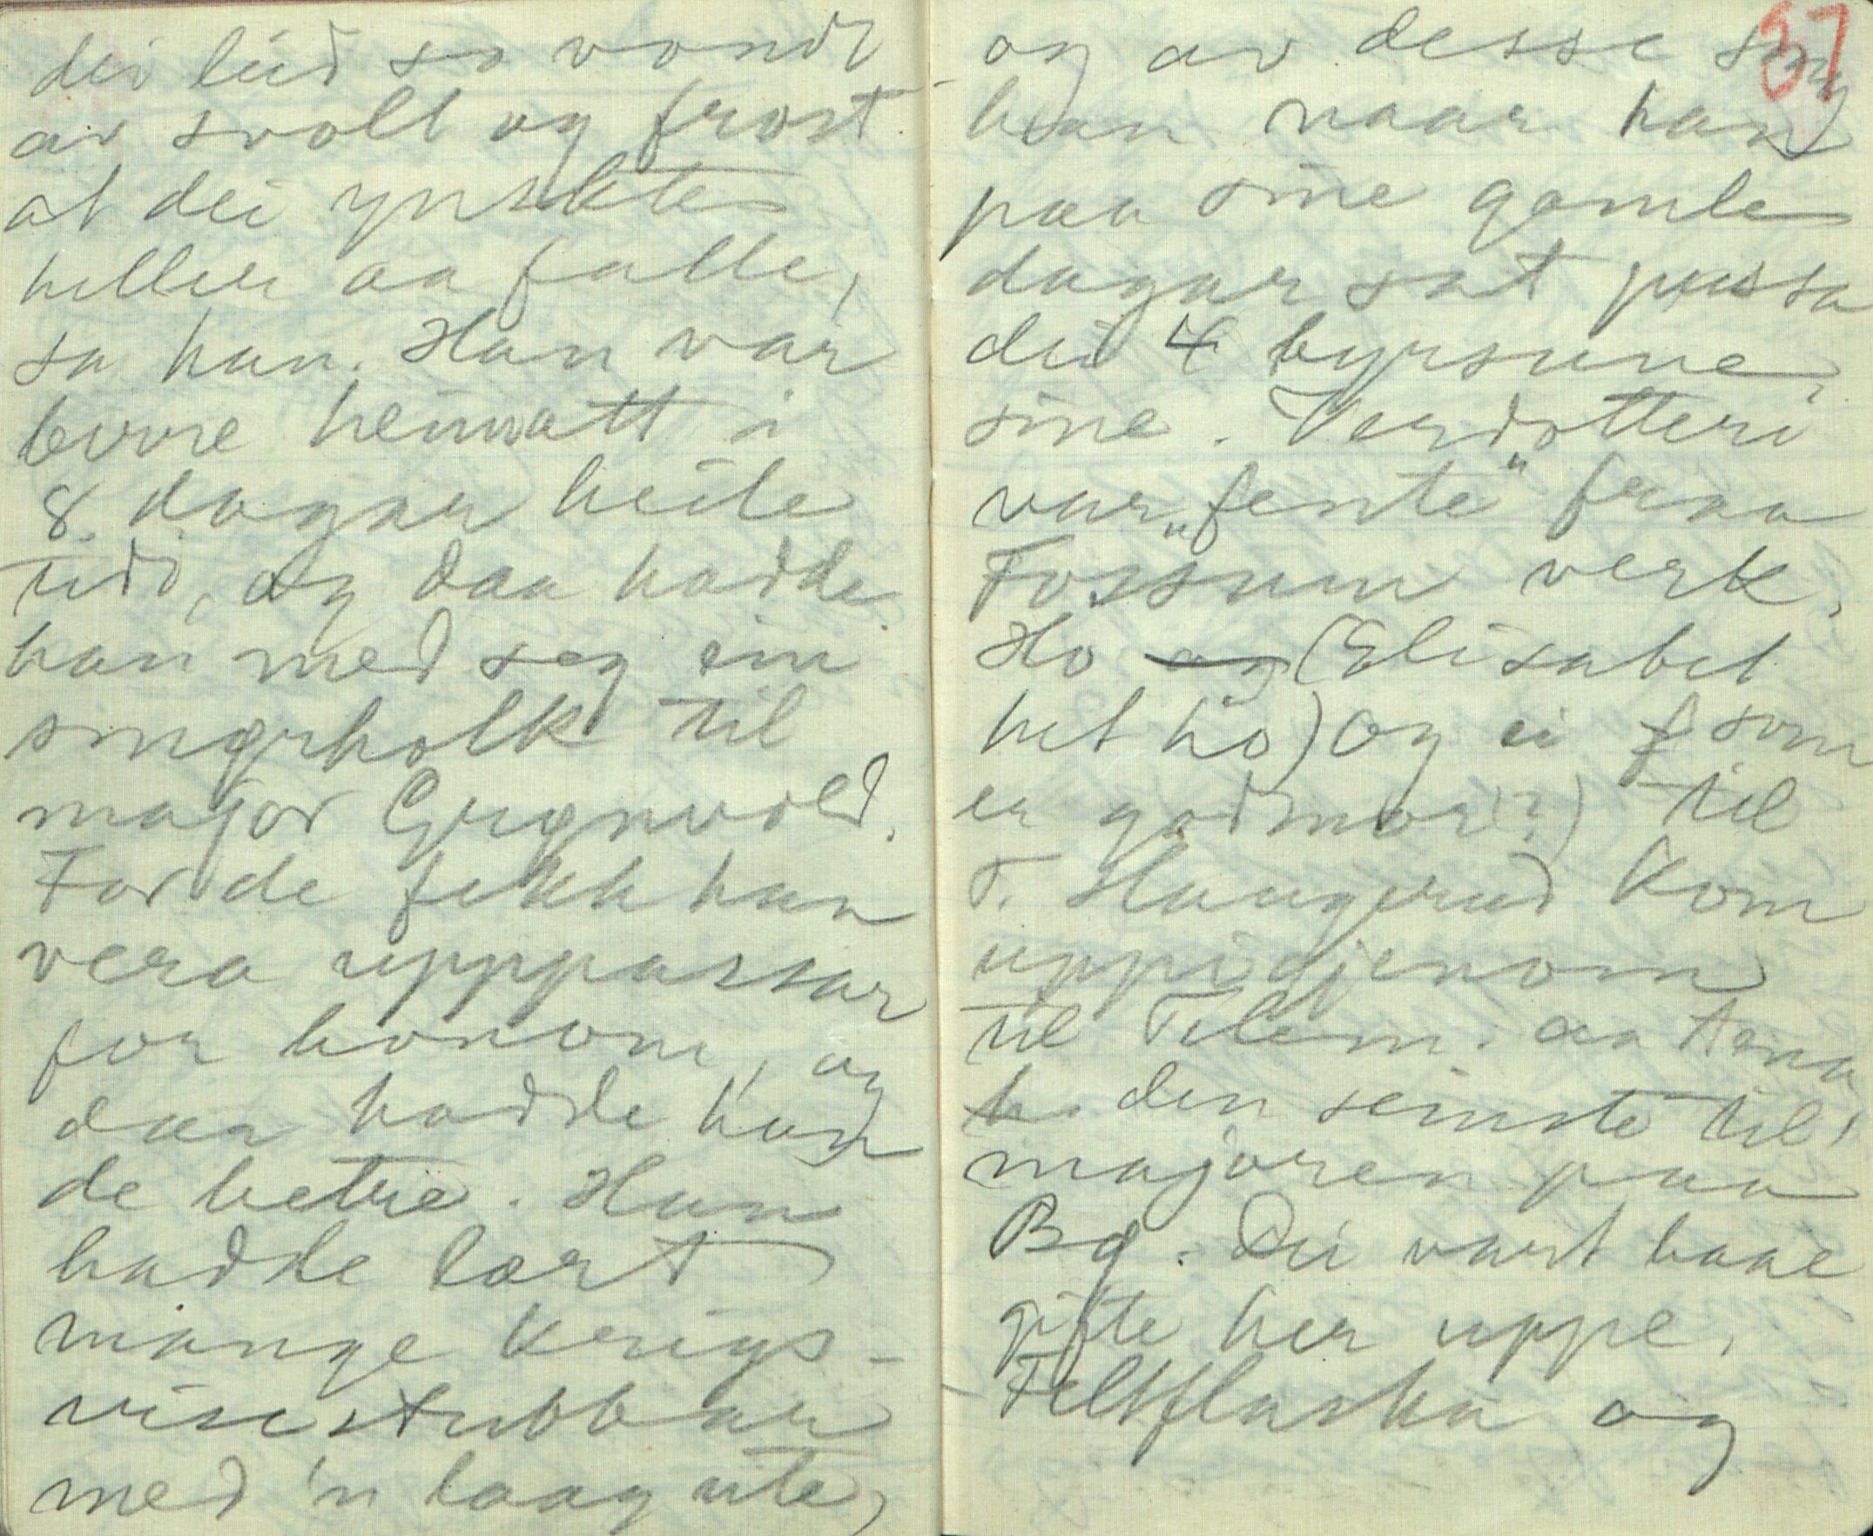 dei leid so vondt
av svolt og frost
at dei ynskte
heller aa falle,
sa han. Han var
berre heimatt i
8 dagar heile
tidi, og daa hadde
han med seg ein
smørholk til
major Grøgnvold.
For de fekk han
vera upppassar
for honom, og
daa hadde han
de betre. Han
hadde lært
mange krigs-
visestubbar
med 'n laag ute,
37
og av desse song
han naar han
paa sine gamle
dagar sat pussa
dei 4 byrsune
sine. Verdotteri
var „fente" fraa
Fossum verk.
Ho og (Elisabet
het ho) og ei f som
er godmor (?) til
T. Haugerud kom
uppigjenom
til Telem. aa tena
h. den seinste til
majoren paa
Bø. Dei vart baae
gifte her uppe.
Feltflaska og